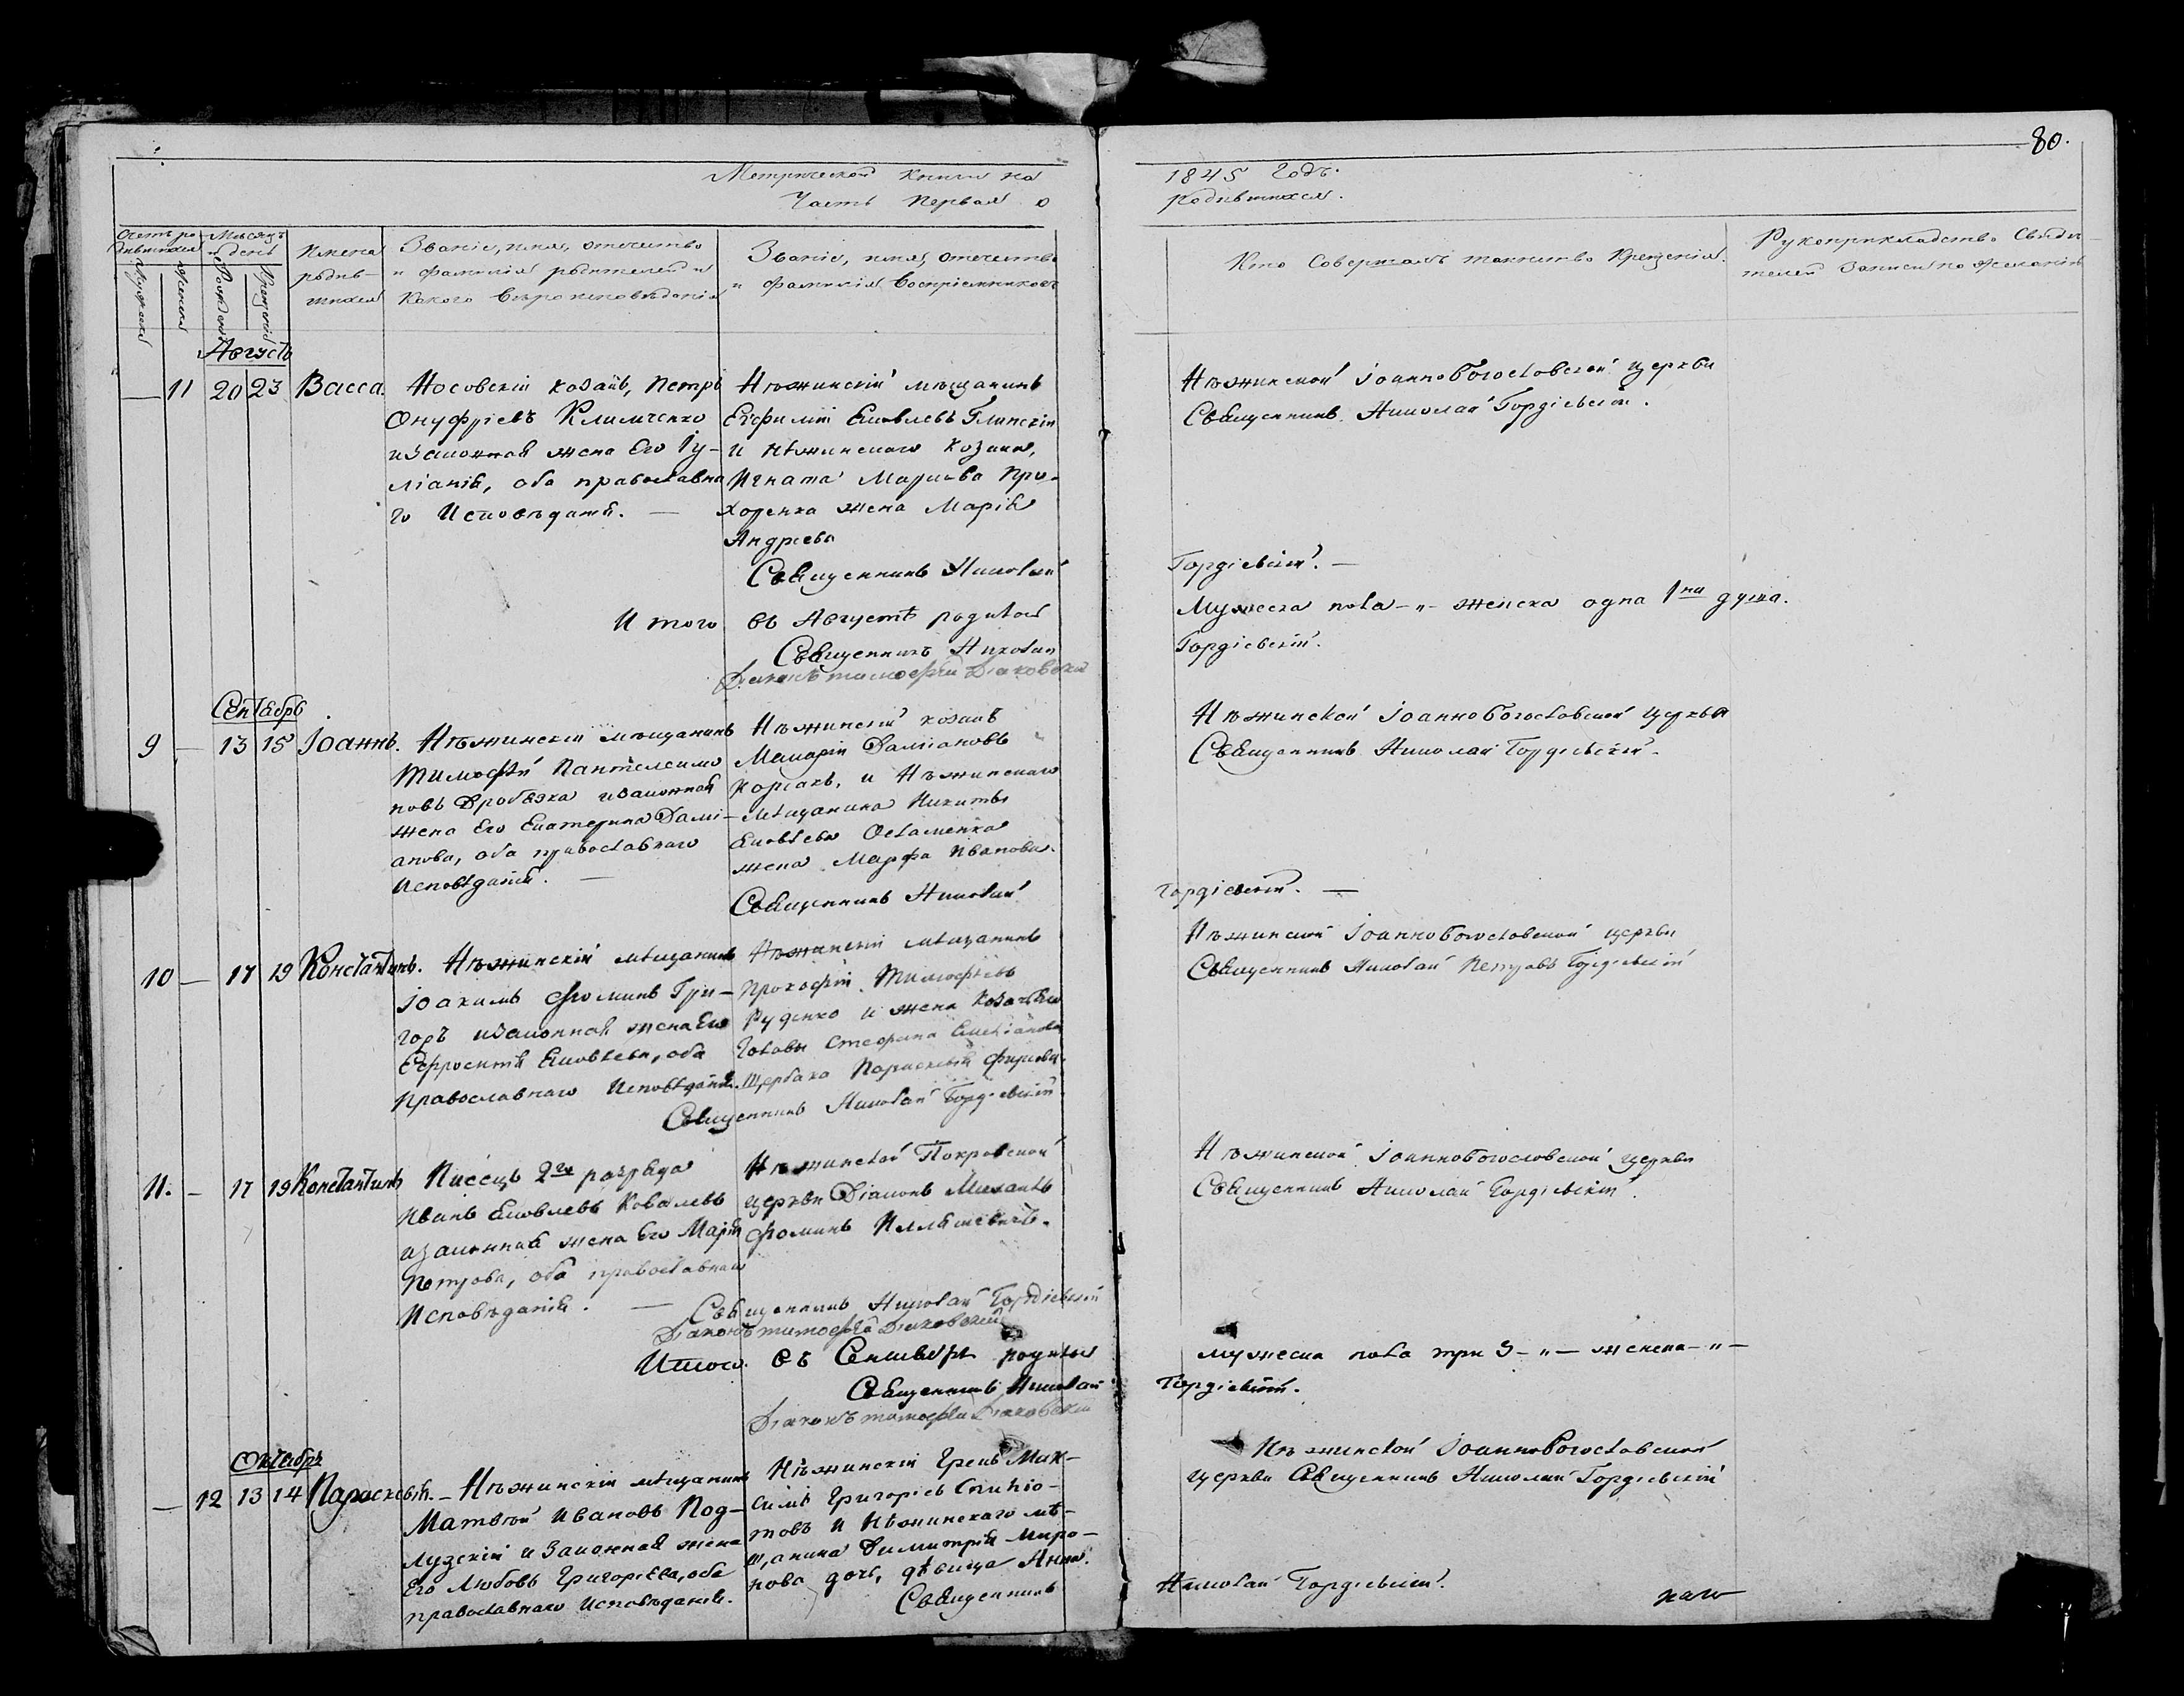 80.
Метрической книги на
1845 Годъ.
Часть Первая о
Родившихся.
Счетъ родившихся
Мѣсяцъ и день
Мужеска
Женска
Рожденія
Крещенія
Имена родившихся
Званіе, имя, отечество
и фамилія родителей и
какого вѣроисповѣданія
Званіе, имя, отечество
и фамилія воспріемниковъ
Кто совершалъ таинство крещенія.
Рукоприкладство свидѣтелей записи по желанію
Августъ
— 11 20 23 Васса.
Носовскій козакъ, Петръ
Онуфріевъ Климченко
и законная жена Его Іу-
ліанія, оба православна
го Исповѣданія. —
Нѣжинскій мѣщанинъ
Евфимій Яковлевъ Глинскій
и нѣжинскаго козака,
Игната Маркова Про-
хоренка жена Марія
Андреева
Священникъ Николай
Нѣжинской Іоанно Богословской церкви
Священникъ Николай Гордіевскій.
Гордіевскій. —
Итого въ Августѣ родилось
Мужеска пола - „ - женска одна 1на душа.
Священникъ Николай
Гордіевскій.
Діаконъ тимофѣй Діаковскій
Сентябрь
9 — 13 15 Іоаннъ.
Нѣжинскій мѣщанинъ
Тимофѣй Пантелеимо
новъ Дробязка и законная
жена Его Екатерина Дамі-
анова, оба православнаго
Исповѣданія. —
Нѣжинскій козакъ
Макарій Даміановъ
Корсакъ, и Нѣжинскаго
мѣщанина Никиты
Яковлева
жена Марфа Иванова.
Священникъ Николай
Нѣжинской Іоанно Богословской церкви
Священникъ Николай Гордіевскій.
Гордіевскій. —
10 — 17 19 Константинъ.
Нѣжинскій мѣщанинъ
Іоакимъ Фоминъ Гри-
горъ и законная жена Его
Евфросинія Яковлева, оба
православнаго Исповѣданія.
Нѣжинскій мѣщанинъ
Прокофій Тимофѣевъ
Руденко и жена козачьяго
Головы Стефана
Щербака Параскевія
Священникъ Николай Гордіевскій.
Нѣжинской Іоанно Богословской церкви
Священникъ Николай Петровъ Гордіевскій
11. — 17 19 Константинъ
Писецъ 2го разряда
Иванъ Яковлевъ Ковалевъ
и законная жена Его Марія
Петрова, оба православнаго
Исповѣданія. —
Нѣжинской Покровской
церкви Діаконъ Михаилъ
Фоминъ
Священникъ Николай Гордіевскій
Діаконъ тимофѣй Діаковскій
Нѣжинской Іоанно Богословской церкви
Священникъ Николай Гордіевскій.
Итого въ Сентябрѣ родилось
мужеска пола три 3 - „ — женска - „ —
Священникъ Николай
Гордіевскій.
Діаконъ тимофѣй Діаковскій
Октябрь
— 12 13 14 Параскевія. —
Нѣжинскій мѣщанинъ
Матвѣй Ивановъ Под-
лузскій и Законная жена
Его Любовь Григорьева, оба
православнаго исповѣданія.
Нѣжинскій Грекъ Мак-
симъ Григорьевъ
и Нѣжинскаго мѣ-
щанина Димитрія Миро-
нова дочь, дѣвица Анна.
Священникъ
Нѣжинской Іоанно Богословской
церкви Священникъ Николай Гордіевскій
Николай Гордіевскій.